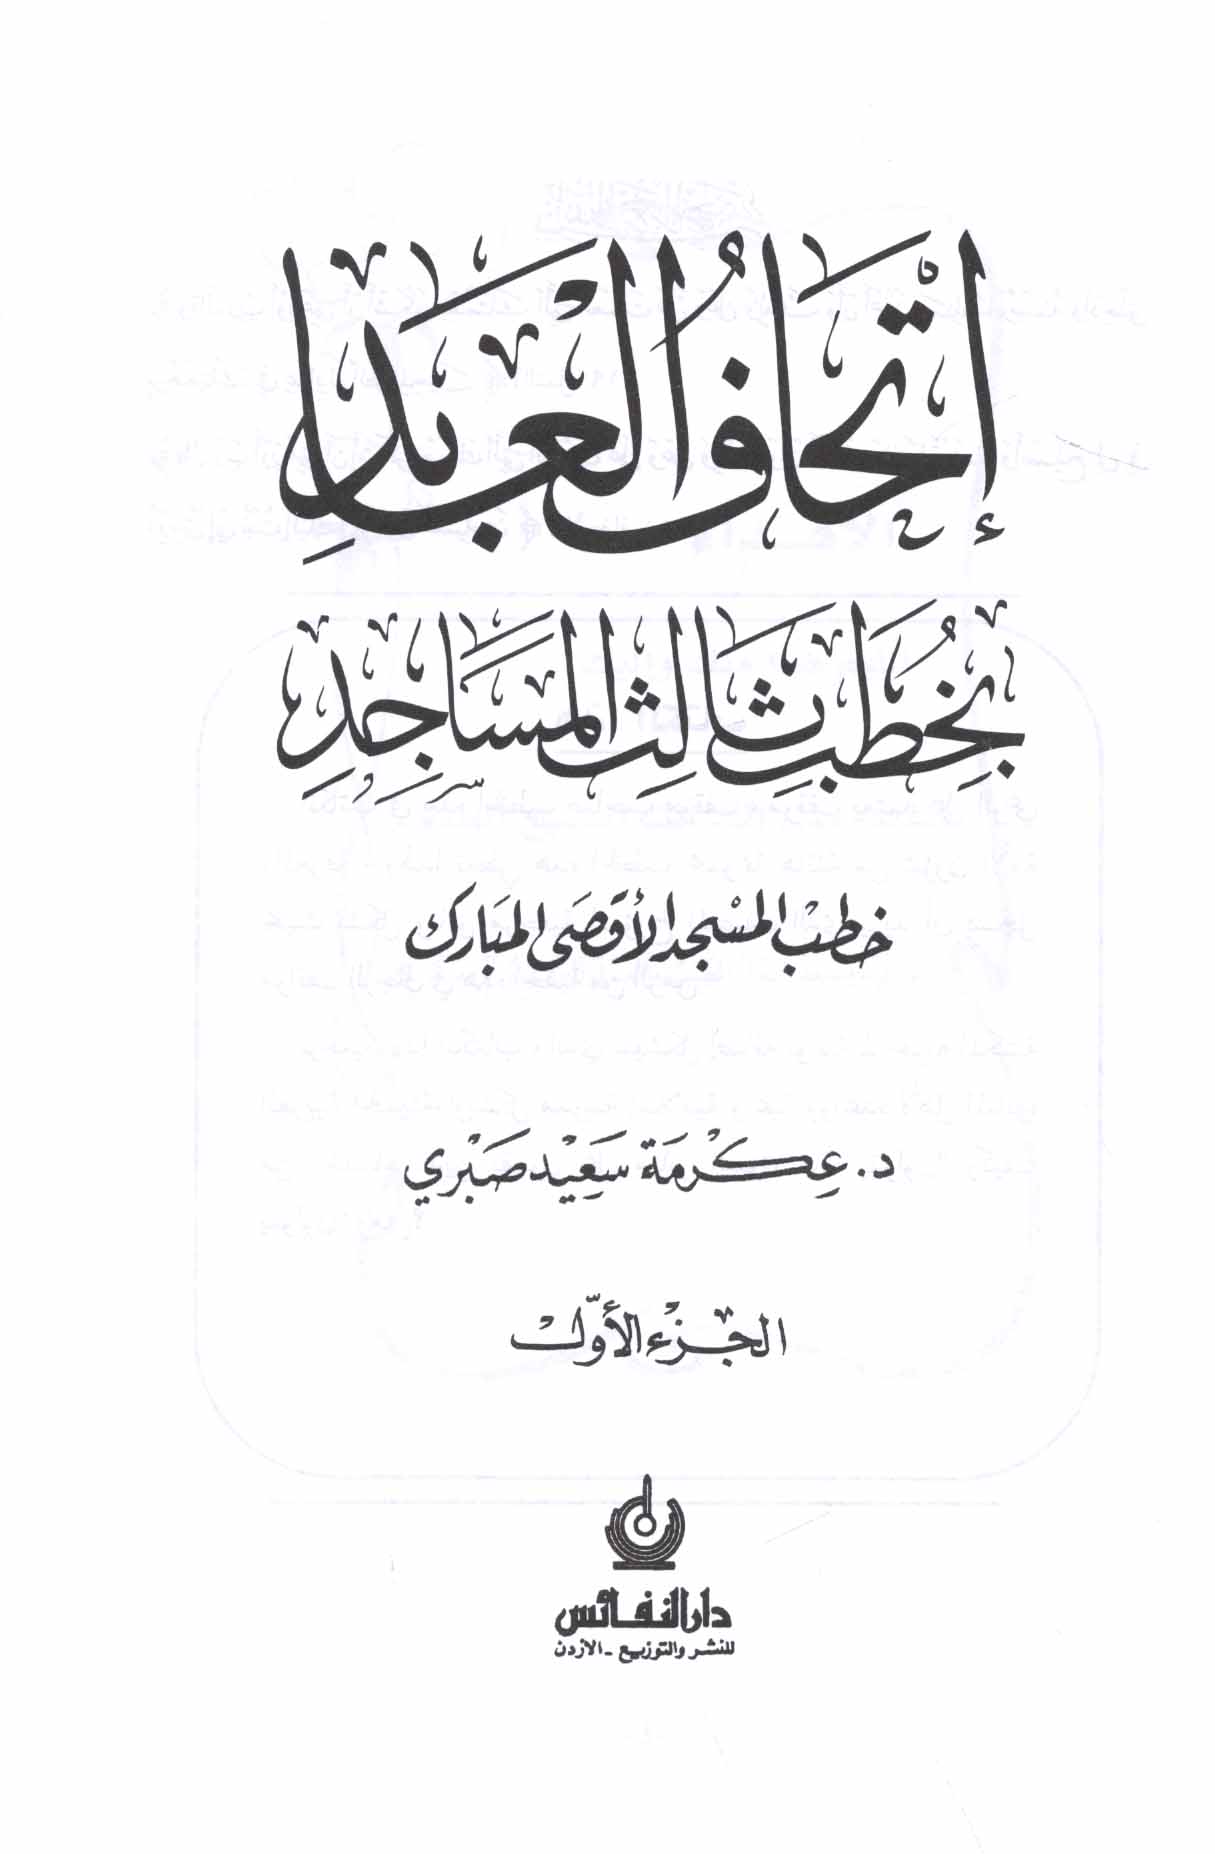 إتحاف العابد
بخطب ثالث المساجد
خطب المسجد الأقصى المبارك
د. عكرمة سعيد صبري
الجزء الأول
دار النفائس
للنشر والتوزيع - الأردن